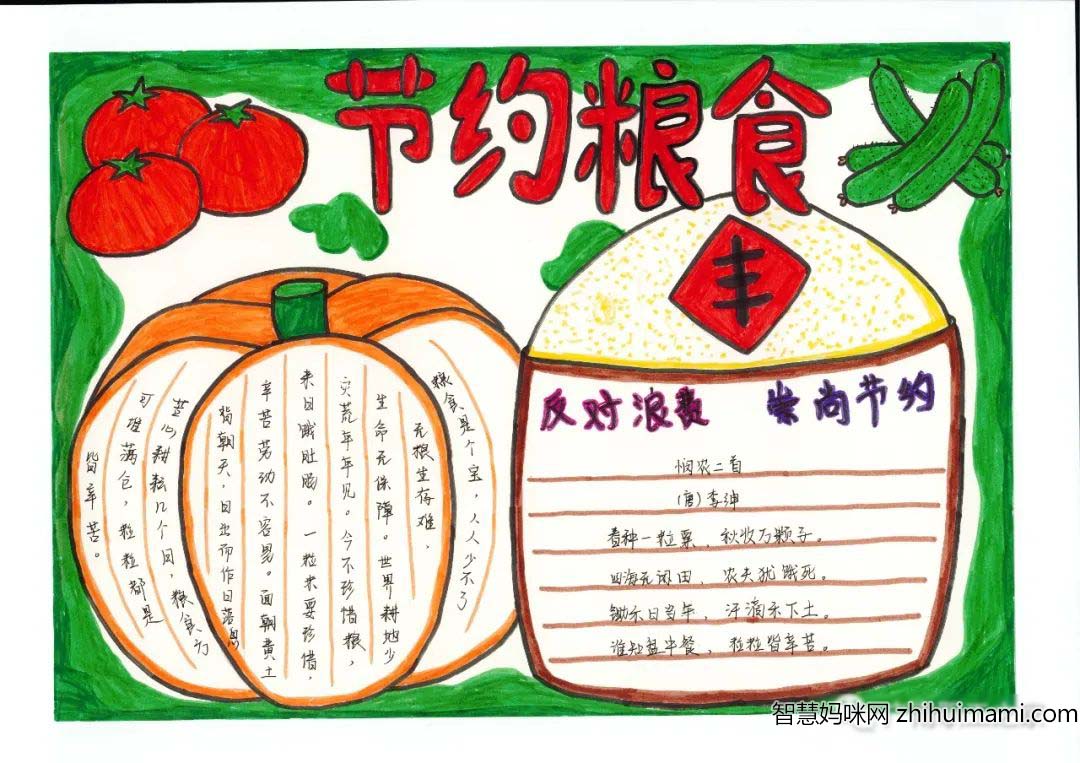 节约粮食
丰
粮食是个宝，人人少不了
无粮生存难，
生命无保障。世界耕地少
灾荒年年见。今不珍惜粮，
来日饿肚肠。一粒米要珍惜，
辛苦劳动不容易。面朝黄土
背朝天，日出而作日落息
苦心耕耘几个月，粮食方
可堆满仓，粒粒都是
皆辛苦。
反对浪费 崇尚节约
悯农二首
(唐)李绅
春种一粒粟，秋收万颗子。
四海无闲田，农夫犹饿死。
锄禾日当午，汗滴禾下土。
谁知盘中餐，粒粒皆辛苦。
智慧妈咪网 zhihuimami.com